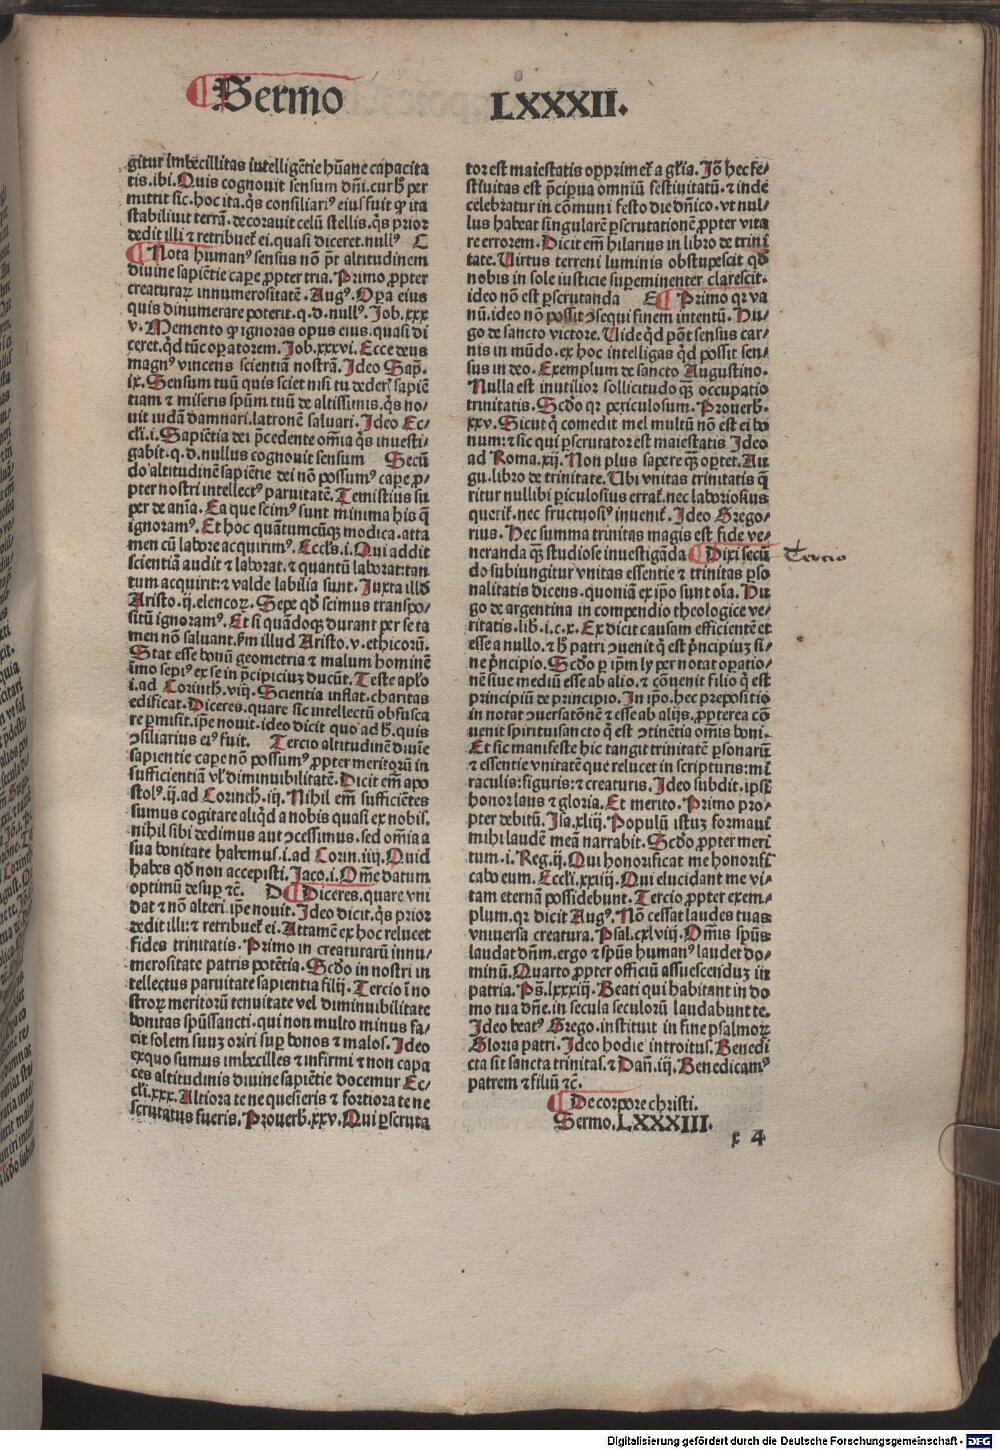 Sermo LXXXII.
gitur imbecillitas intelligētie hūane capacita
tis.ibi.Quis cognouit sensum dn̄i.cur hꝫ per
mittit sic.hoc ita.q̄s consiliariꝰ eius fuit ꝙ ita
stabiliuit terrā.decorauit celū stellis.q̄s prior
dedit illi ⁊ retribueť ei.quasi diceret.nullꝰ C
¶Nota humanꝰ sensus nō p̄t altitudinem
diuine sapiētie caꝑe ꝓpter tria.Primo ꝓpter
creaturaꝝ innumerositatē.Augꝰ.Oꝑa eius
quis dinumerare poterit.q.d.nullꝰ.Job.xxx
v.Memento ꝙ ignoras opus eius.quasi di
ceret.q̄d tūc oꝑatorem.Job.xxxvi.Ecce deus
magnꝰ vincens scientiā nostrā.Ideo Sap̄.
ix.Sensum tuū quis sciet nisi tu dederꝭ sapiē
tiam ⁊ miseris spūm tuū de altissimis.q̄s no/
uit iudā damnari.latronē saluari.Ideo Ec/
clī.i.Sapiētia dei p̄cedente om̄ia q̄s inuesti/
gabit.q.d.nullus cognouit sensum Secū
do altitudinē sapiētie dei nō possumꝰ caꝑe ꝓ/
pter nostri intellectꝰ paruitatē.Temistius su
per de aīa.Ea que scimꝰ sunt minima his q̄
ignoramꝰ.Et hoc quātumcūqꝫ modica.atta
men cū labore acquirimꝰ.Eccl̄s.i.Qui addit
scientiā audit ⁊ laborat.⁊ quantū laborat:tan
tum acquirit:⁊ valde labilia sunt.Juxta illḋ
Aristo.ij.elencoꝝ.Sepe qḋ scimus transpo/
sitū ignoramꝰ.Et si quādoqꝫ durant per se ta
men nō saluant.ẜm illud Aristo.v.ethicorū.
Stat esse bonū geometria ⁊ malum hominē
īmo sepiꝰ ex se in p̄cipicius ducūt.Teste apl̄o
i.ad Corinth.viij.Scientia inflat.charitas
edificat.Diceres.quare sic intellectū obfusca
re permisit.ip̄e nouit.ideo dicit quo ad hꝫ.quis
ↄsiliarius eiꝰ fuit. Tercio altitudinē diuīe
sapientie cape non possumꝰ ꝓpter meritorū in
sufficientiā vl̓ diminuibilitatē.Dicit em̄ apo
stolꝰ.ij.ad Corinth.iij.Nihil em̄ sufficiētes
sumus cogitare aliqd̓ a nobis quasi ex nobis.
nihil sibi dedimus aut ↄcessimus.sed om̄ia a
sua bonitate habemus.i.ad Corin.iiij.Quid
habes qḋ non accepisti.Jaco.i.Om̄e datum
optimū desuꝑ ⁊c̄. D ¶Diceres.quare vni
dat ⁊ nō alteri.ip̄e nouit.Ideo dicit.q̄s prior
dedit illi:⁊ retribueť ei.Attamē ex hoc relucet
fides trinitatis.Primo in creaturarū innu/
merositate patris potētia.Scḋo in nostri in
tellectus paruitate sapientia filij.Tercio ī no
stroꝝ meritorū tenuitate vel diminuibilitate
bonitas spūssancti.qui non multo minus fa/
cit solem suuꝫ oriri suꝑ bonos ⁊ malos.Ideo
exquo sumus imbecilles ⁊ infirmi ⁊ non capa
ces altitudinis diuine sapiētie docemur Ec/
clī.xxx.Altiora te ne quesieris ⁊ fortiora te ne
scrutatus fueris.Prouerb.xxv.Qui ꝑscruta
tor est maiestatis opprimeť a gl̓ia.Jō hec fe/
stiuitas est p̄cipua omniū festiuitatū.⁊ inde
celebratur in cōmuni festo die dn̄ico.vt nul/
lus habeat singularē ꝑscrutationē ꝓpter vita
re errorem.Dicit em̄ hilarius in libro de trini
tate.Uirtus terreni luminis obstupescit qḋ
nobis in sole iusticie suꝑeminenter clarescit.
ideo nō est ꝑscrutanda E ¶Primo qꝛ va
nū.ideo nō possit ↄsequi finem intentū.Hu/
go de sancto victore.Uide qd̓ pōt sensus car/
nis in mūdo.ex hoc intelligas qd̓ possit sen/
sus in deo.Exemplum de sancto Augustino.
Nulla est inutilior sollicitudo qꝫ occupatio
trinitatis.Scḋo qꝛ periculosum.Prouerb.
xxv.Sicut q̓ comedit mel multū nō est ei bo
num:⁊ sic qui ꝑscrutator est maiestatis Ideo
ad Roma.xij.Non plus sapere qꝫ oꝑtet.Au
gu.libro de trinitate.Ubi vnitas trinitatis q̄
ritur nullibi ꝑiculosius errať.nec laboriosius
queriť.nec fructuosiꝰ inueniť.Ideo Grego/
rius.Hec summa trinitas magis est fide ve/
neranda qꝫ studiose inuestigāda ¶Dixi secū Tercio
do subiungitur vnitas essentie ⁊ trinitas ꝑso
nalitatis dicens.quoniā ex ip̄o sunt oīa.Hu
go de argentina in compendio theologice ve/
ritatis.lib.i.c.x.Ex dicit causam efficientē et
esse a nullo.⁊ hꝫ patri ↄuenit q̓ est p̄ncipiuꝫ si/
ne p̄ncipio.Scḋo ꝑ ip̄m ly per notat oꝑatio/
nē siue mediū esse ab alio.⁊ cōuenit filio q̓ est
principiū de principio.In ip̄o.hec prepositio
in notat ↄuersatōnē ⁊ esse ab alijs.ꝓpterea cō
uenit spirituisancto q̓ est ↄtinētia om̄is boni.
Et sic manifeste hic tangit trinitatē ꝑsonarū
⁊ essentie vnitatē que relucet in scripturis:mi
raculis:figuris:⁊ creaturis.Ideo subdit.ipsi
honor laus ⁊ gloria.Et merito.Primo pro/
pter debitū.Isa.xliij.Populū istuꝫ formaui
mihi laudē meā narrabit.Scḋo ꝓpter meri
tum.i.Reg.ij.Qui honorificat me honorifi
cabo eum.Ecclī.xxiiij.Qui elucidant me vi/
tam eternā possidebunt.Tercio ꝓpter exem/
plum.qꝛ dicit Augꝰ.Nō cessat laudes tuas
vniuersa creatura.Psal.cxlviij.Om̄is spūs
laudat dn̄m.ergo ⁊ spūs humanꝰ laudet do/
minū.Quarto ꝓpter officiū assuescenduꝫ in
patria.Ps̄.lxxxiij.Beati qui habitant in do
mo tua dn̄e.in secula seculorū laudabunt te.
Ideo beatꝰ Grego.instituit in fine psalmoꝝ
Gloria patri.Ideo hodie introitus.Benedi
cta sit sancta trinitas.⁊ Dan̄.iij.Benedicamꝰ
patrem ⁊ filiū ⁊c̄.
¶De corpore christi.
Sermo.LXXXIII.
x 4
Digitalisierung gefördert durch die Deutsche Forschungsgemeinschaft - DFG